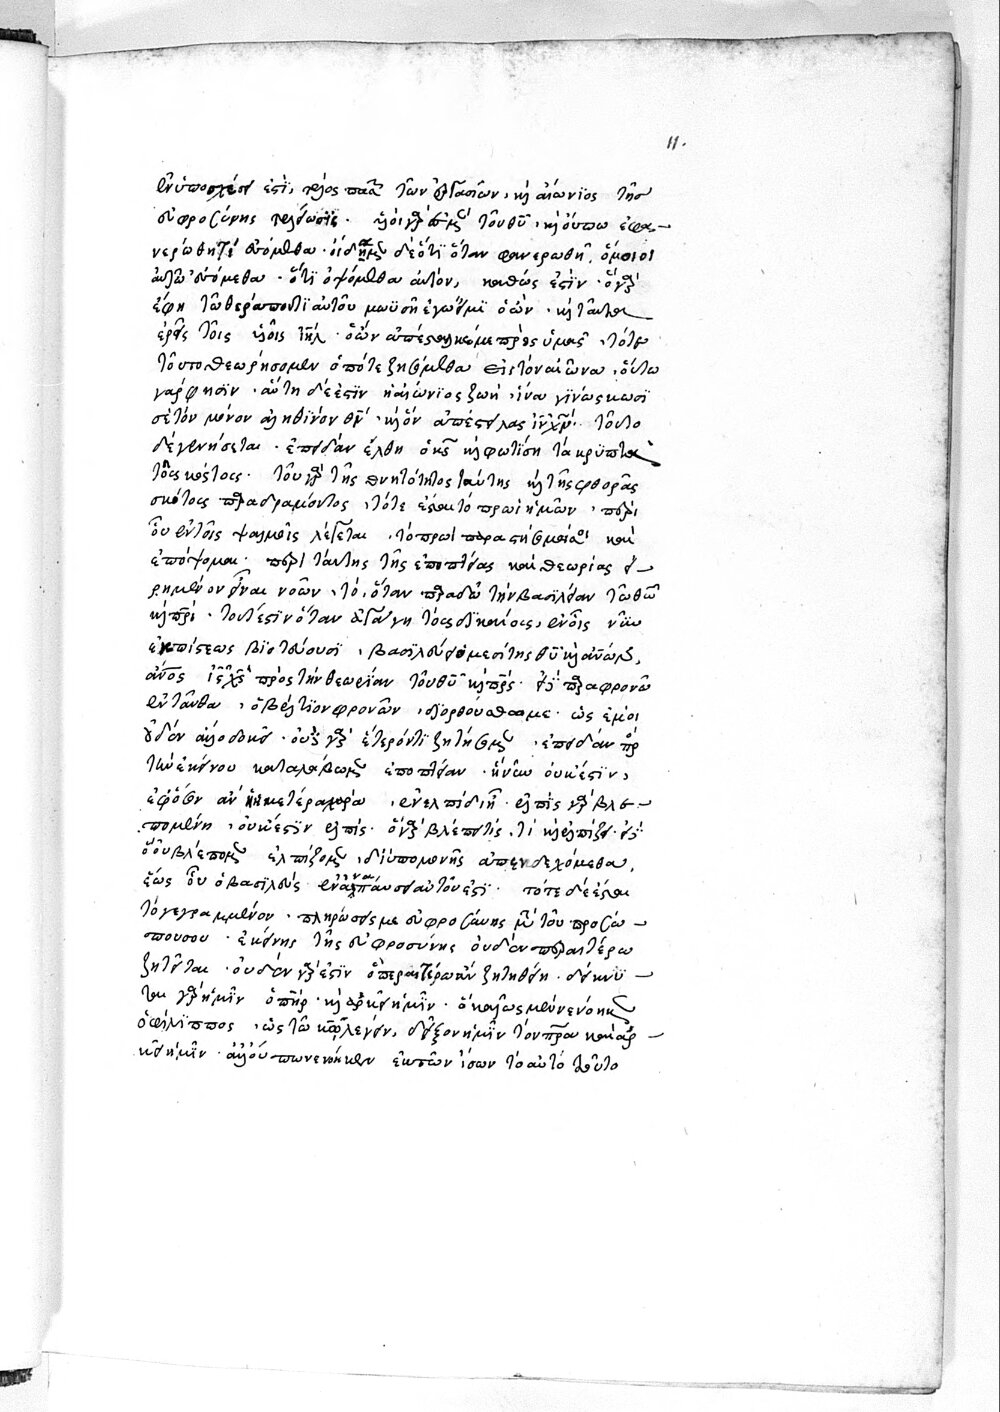 11.
ἐν ὑποσχέσει ἐστὶ, τέλος παντων τῶν ἐξετάσεων, καὶ αἰώνιος τῆς
εὐφροσύνης τελείωσις. υἱοὶ γάρ ἐσμεν τοῦ θεοῦ, καὶ οὔπω ἐφα-
νερώθη τί ἐσόμεθα. οἴδαμεν δὲ ὅτι ὅταν φανερωθῆ, ὅμοιοι
αὐτῶ ἐσόμεθα. ὅτι ὀψόμεθα αὐτὸν, καθώς ἐστιν.
ἔφη τῶ θεράποντι αὐτοῦ μωϋσῆ ἐγώ εἰμι ὁ ὤν. καὶ ταῦτα
ἐρεῖς τοῖς υἱοῖς ἰσραήλ. ὁ ὤν ἀπέσταλκέ με πρὸς ὑμᾶς. τότε
τοῦτο θεωρήσομεν ὁπότε ζήσομεθα εἰς τὸν αἰῶνα. οὕτω
γὰρ φησὶν. αὕτη δέ ἐστὶν ἡ αἰώνιος ζωὴ, ἵνα γινώσκωσί
σε τὸν μόνον ἀληθινὸν θν. καὶ ὃν ἀπέστειλας ιν χν. τοῦτο
δὲ γενήσεται. ἐπειδὰν ἔλθη ὁ κς καὶ φωτίση τὰ κρυπτὰ
τοῦ σκότους. τοῦ γὰρ τῆς θνητότητος ταύτης καὶ τῆς φθορᾶς
σκότους παραδραμόντος, τότε ἔσται τὸ πρωὶ ἡμῶν. περὶ
οὗ ἐν τοῖς ψαλμοῖς λέγεται. τὸ πρωὶ παραστήσομαί σοι καὶ
ἐπόψομαι. περὶ ταύτης τῆς ἐποπτείας καὶ θεωρίας εἰ-
ρημένον εἶναι νοῶν, τὸ, ὅταν παραδῶ τὴν βασιλείαν τῶ θεῶ
καὶ πρι. τουτέστιν ὅταν ἀγάγη τοὺς δικαίους, ἐν οἷς νῦν
ἐκ πίστεως βιοτεύουσι, βασιλεύει ὁ μεσίτης θεοῦ καὶ ἀνων,
ανος ις χς πρὸς τὴν θεωρίαν τοῦ θεοῦ καὶ πρς. εἰ παραφρονῶ
ἐνταῦθα, ὁ βέλτιον φρονῶν, διορθούσθω με. ὡς ἐμοὶ
οὐδὲν ἄλλο δοκεῖ. οὐ γὰρ ἕτερόν τι ζητήσομεν, ἐπειδὰν πρὸς
τὴν ἐκείνου καταλάβωμεν ἐποπτείαν. ἣ νῦν οὐκ ἔστιν,
ἐφόσον ἂν ἡ ἡμετέρα χαρὰ, ἐν ἐλπίδι ἦ. ἐλπὶς γὰρ βλε-
πομένη, οὐκ ἔστιν ἐλπίς. ὃ γὰρ βλέπει τὶς, τί καὶ ἐλπίζει. εἰ
δὲ ὃ οὐ βλέπομεν ἐλπίζομεν, δι' ὑπομονῆς ἀπεκδεχόμεθα,
ἕως οὗ ὁ βασιλεὺς ἐν ἀναπαύσει αὐτοῦ ἐστί. τότε δὲ ἔσται
τὸ γεγραμμένον. πληρώσεις με εὐφροσύνης μετὰ τοῦ προσώ-
που σου. ἐκείνης τῆς εὐφροσύνης οὐδὲν περαιτέρω
ζητεῖται. οὐδὲν γὰρ ἔστιν ὃ περαιτέρω ἂν ζητηθείη. δείκνυ-
ται γὰρ ἡμῖν ὁ πηρ. καὶ ἀρκεῖ ἡμῖν. ὃ καλῶς μὲν νενόηκεν
ὁ φίλιππος, ὡς τῶ κω λέγειν, δεῖξον ἡμῖν τὸν πρα καὶ ἀρ-
κεῖ ἡμῖν. ἀλλ' οὔπω νενόηκεν ἐκ τῶν ἴσων τὸ αὐτὸ τοῦτο